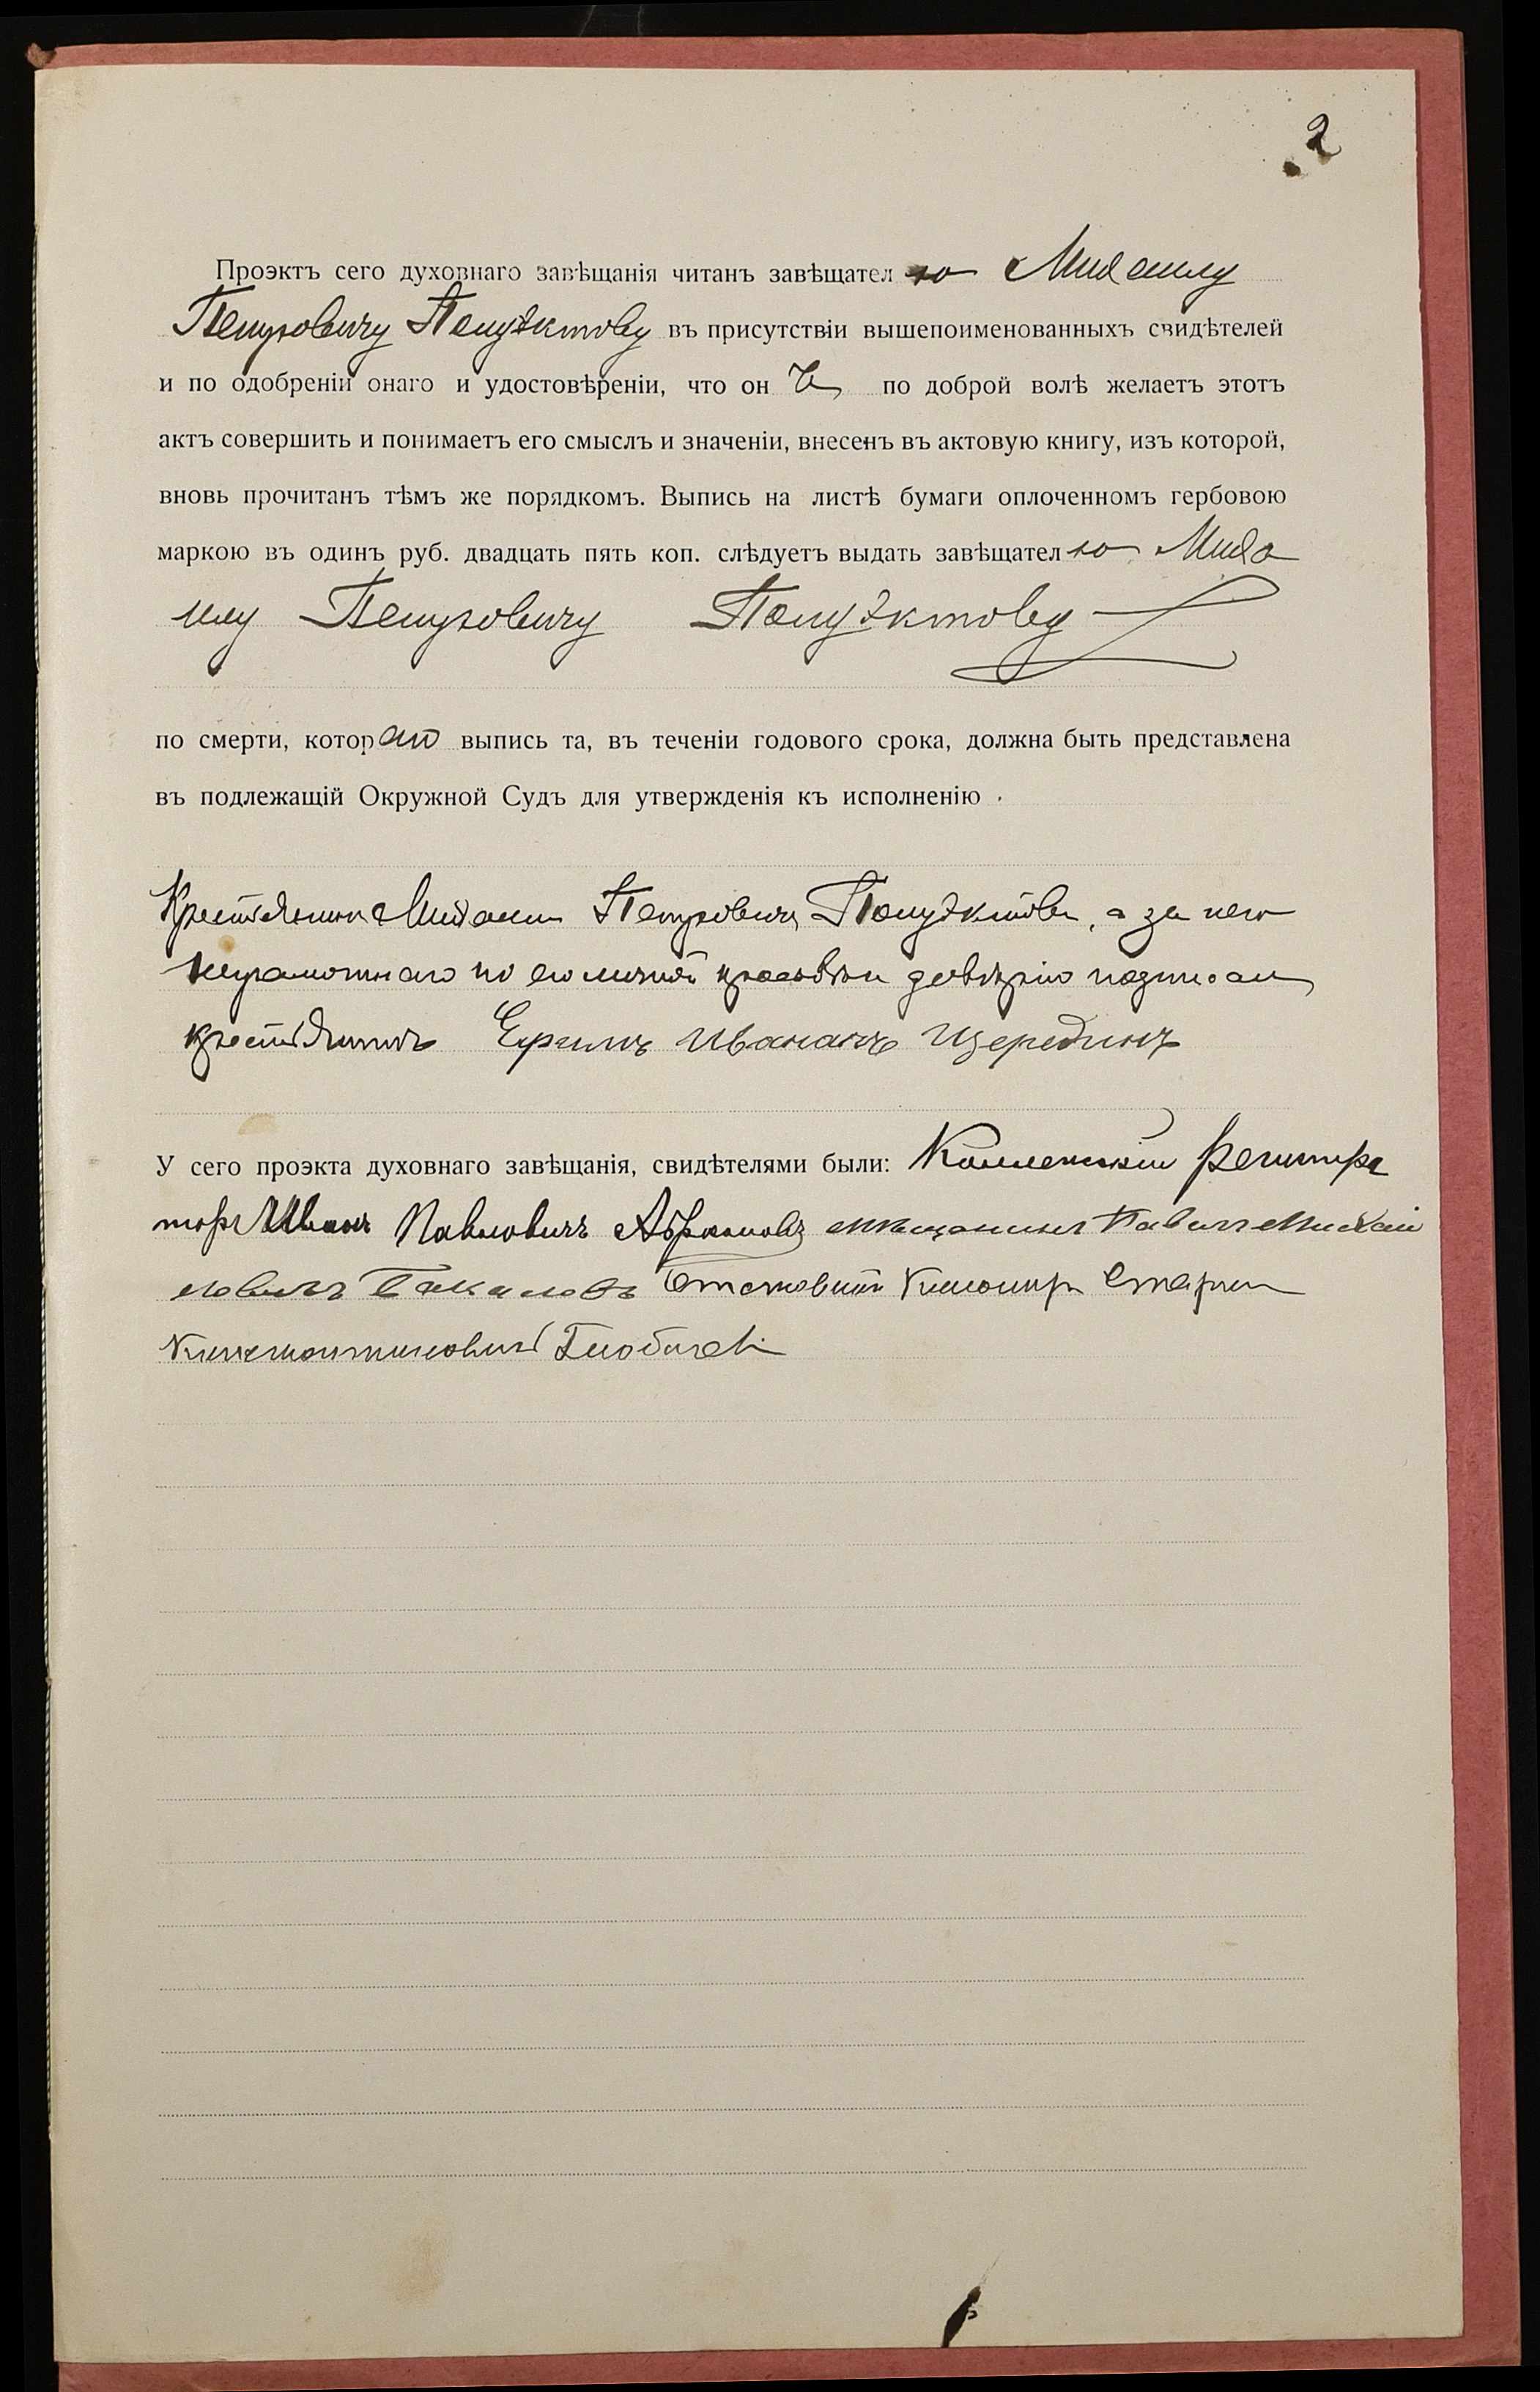 2
Проэктъ сего духовнаго завѣщанія читанъ завѣщателю Михаилу
Петровичу Полуэктову въ присутствіи вышепоименованныхъ свидѣтелей
и по одобреніи онаго и удостовѣреніи, что он ъ по доброй волѣ желаетъ этотъ
актъ совершить и понимаетъ его смыслъ и значеніи, внесенъ въ актовую книгу, изъ которой,
вновь прочитанъ тѣмъ же порядкомъ. Выпись на листѣ бумаги оплоченномъ гербовою
маркою въ одинъ руб. двадцать пять коп. слѣдуетъ выдать завѣщателю Миха
илу Петровичу Полуэктову
по смерти, котораго выпись та, въ теченіи годового срока, должна быть представлена
въ подлежащій Окружной Судъ для утвержденія къ исполненію .
Крестьянинъ Михаилъ Петровичъ Полуэктовъ, а за него
неграмотнаго по его личной просьбѣ и довѣрію подписалъ
крестьянинъ Ефимъ Ивановъ Щерединъ
У сего проэкта духовнаго завѣщанія, свидѣтелями были: Коллежскій Регистра
торъ Иванъ Павловичъ мѣщанинъ Павелъ Михай
ловичъ Отставной
Константиновичъ